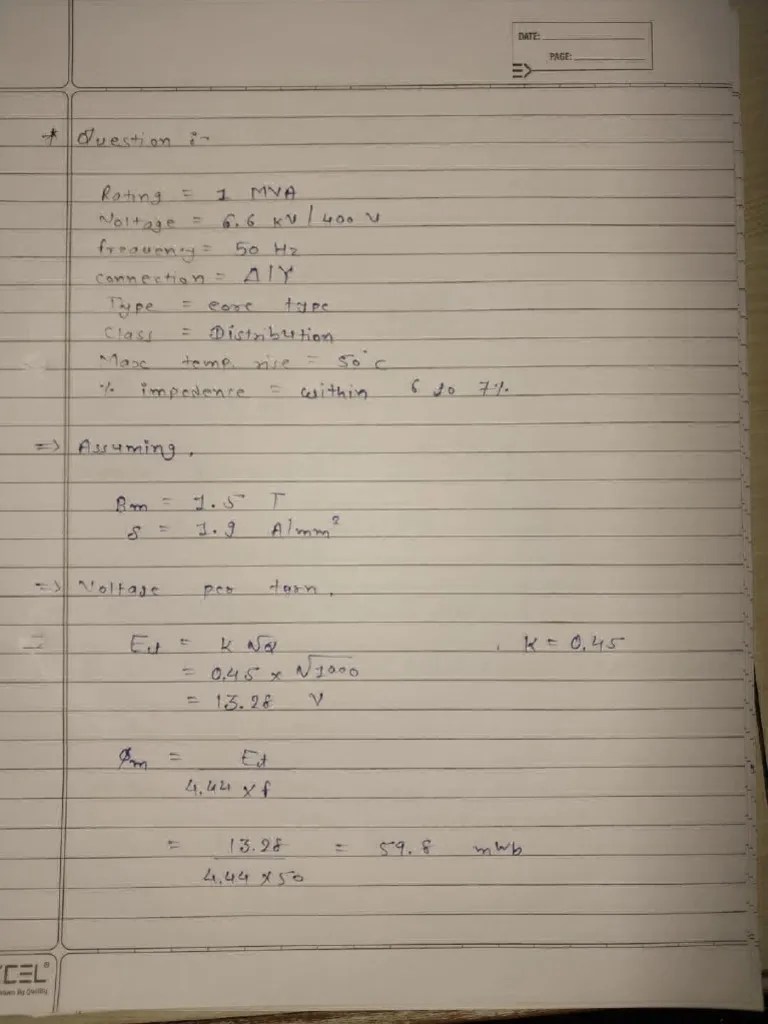 DATE:
PAGE:
* Question :-
Rating = 1 MVA
Voltage = 6.6 kV / 400 V
frequency = 50 Hz
connection = Δ/Y
Type = core type
Class = Distribution
Max temp. rise = 50°C
% impedence = within 6 to 7%.
=> Assuming,
Bm = 1.5 T
δ = 1.9 A/mm²
=> Voltage per turn.
Et = K √Q , K = 0.45
= 0.45 × √1000
= 13.28 V
Φm = Et
4.44 × f
= 13.28 = 59.8 mWb
4.44 × 50
CEL®